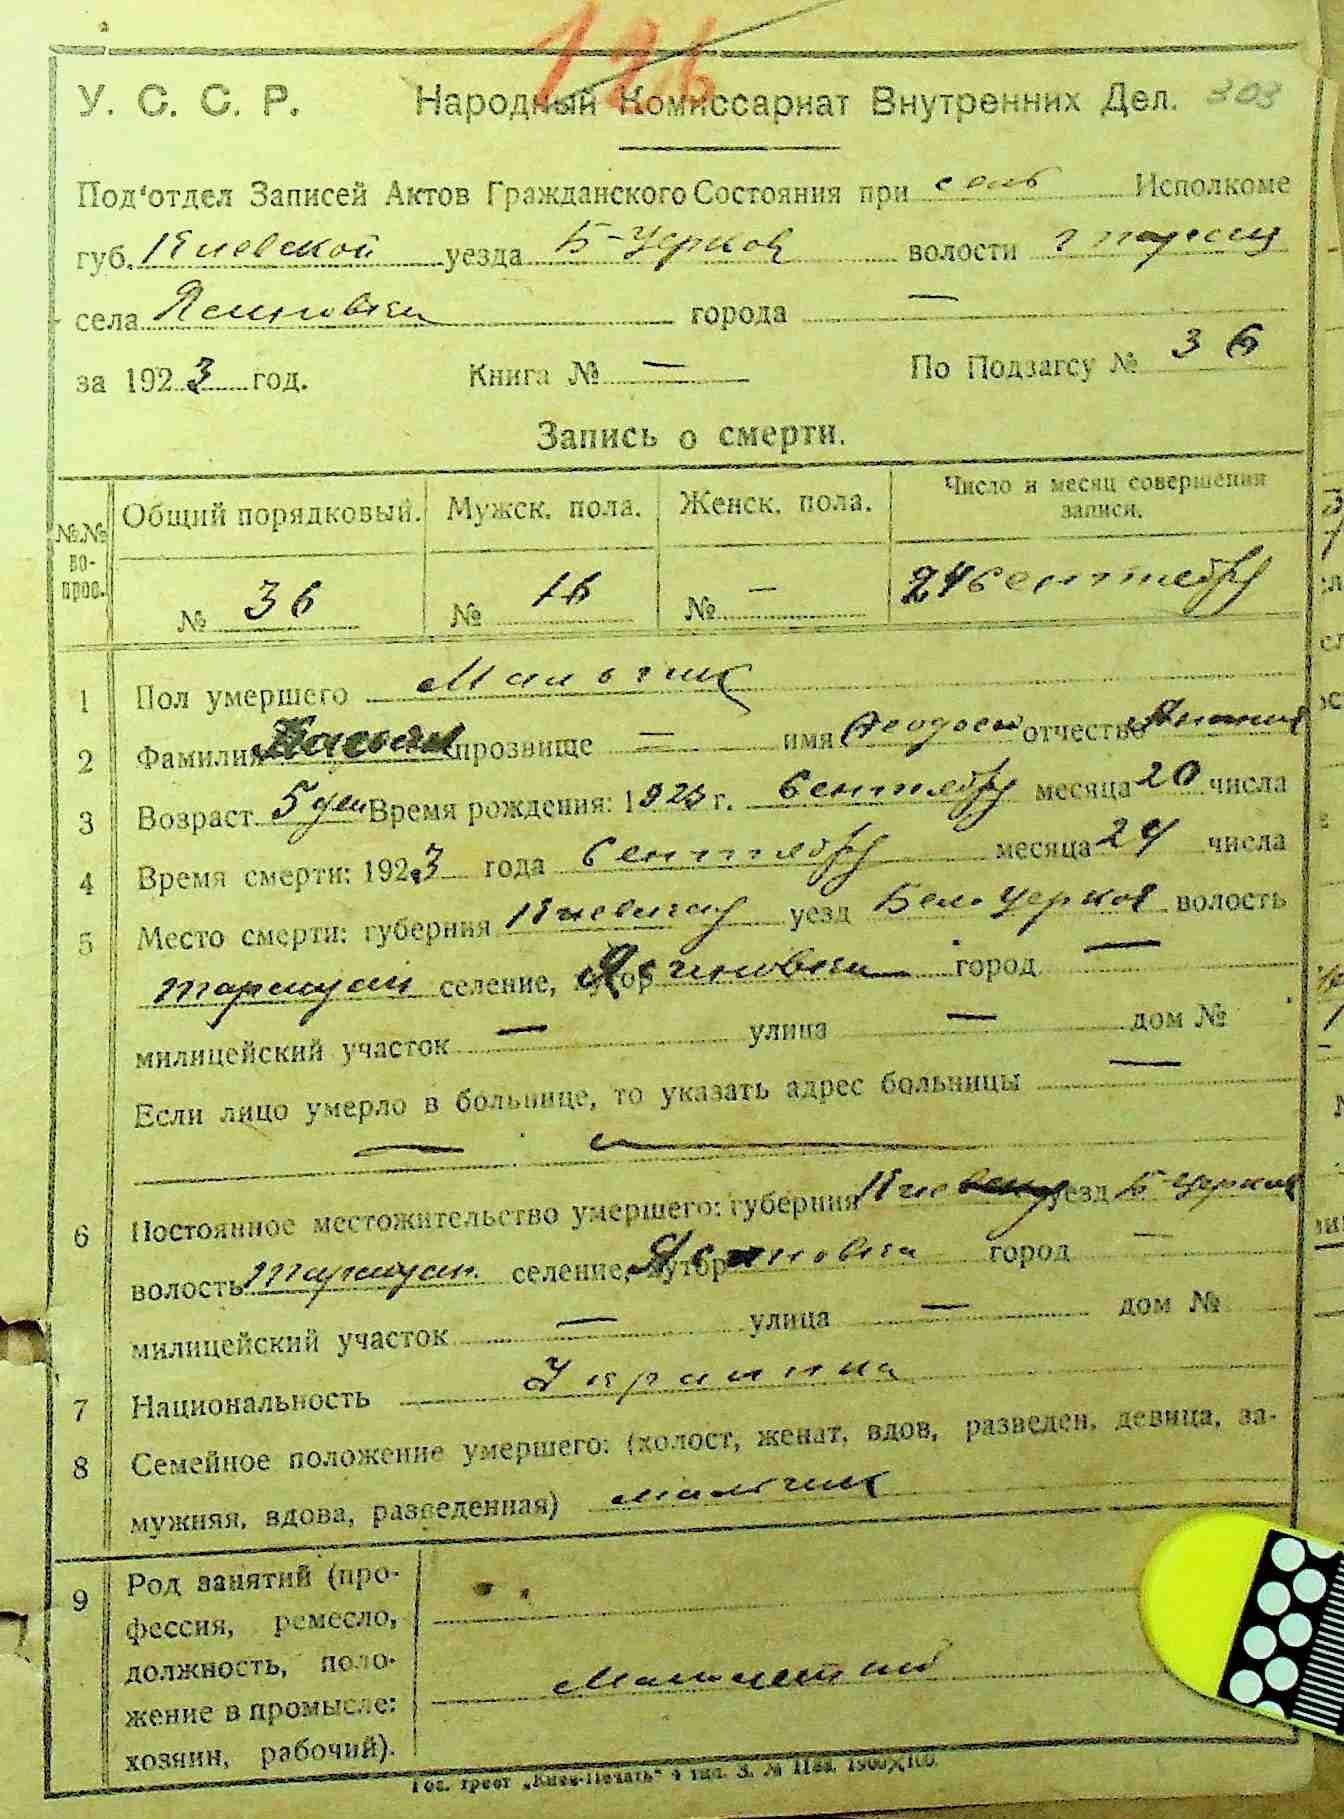 126
У. С. С. Р. Народный Комиссариат Внутренних Дел. 303
Под'отдел Записей Актов Гражданского Состояния при сель Исполкоме
губ. Киевской уезда Б-Церков волости
села города —
за 1923 год. Книга № — По Подзагсу № 36
Запись о смерти.
№.№ во- прос. Общий порядковый. Мужск. пола. Женск. пола. Число и месяц совершения записи.
№ 36 № 16 № — 24 сентебру
1 Пол умершего Мальчик
2 Фамилия прозвище — имя Феодосий отчество
3 Возраст 5 ден Время рождения: 1923 г. сентебру месяца 20 числа
4 Время смерти: 1923 года сентебру месяца 24 числа
5 Место смерти: губерния уезд Бело Церков волость
селение, хутор город —
милицейский участок — улица — дом №
Если лицо умерло в больнице, то указать адрес больницы —
—
6 Постоянное местожительство умершего: губерния уезд Б-Церков
волость селение, хутор город —
милицейский участок — улица — дом №
7 Национальность
8 Семейное положение умершего: (холост, женат, вдов, разведен, девица, за-
мужняя, вдова, разведенная) мальчик
9 Род занятий (про-
фессия, ремесло,
должность, поло-
жение в промысле:
хозяин, рабочий).
Гос. трест „Киев-Печать"